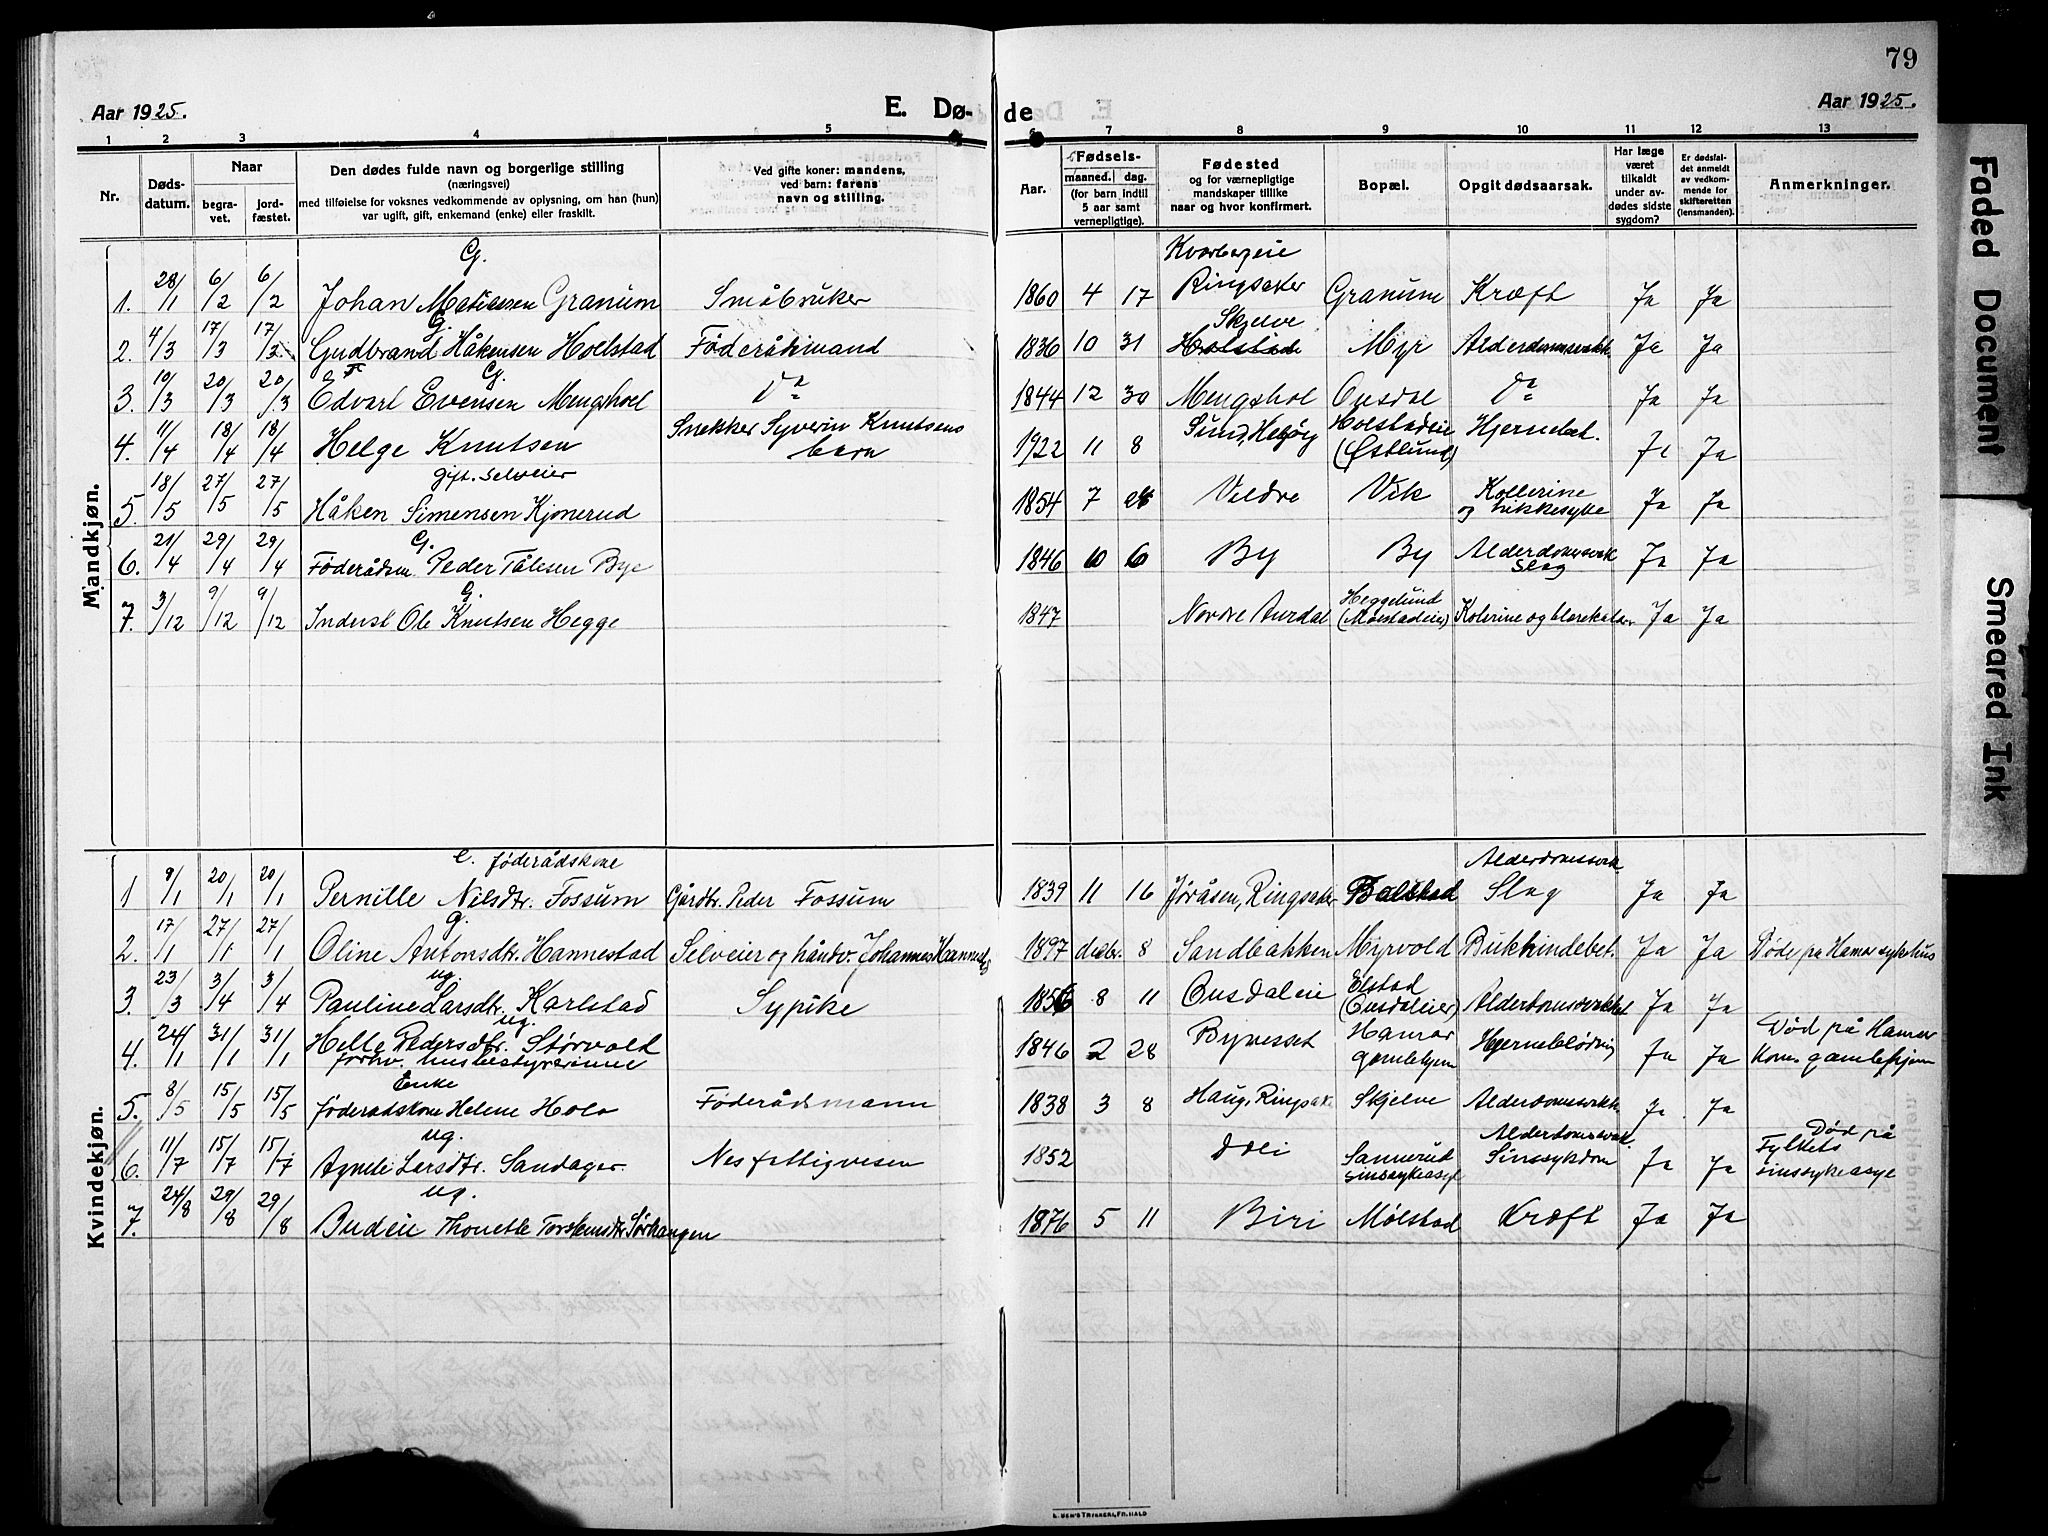 79
Aar 1925.
E. Dø- de
Aar 1925.
1 2 3 4 5 6 7 8 9 10 11 12 13
Nr.
Døds-
datum.
Naar
begra-
vet.
jord-
fæstet.
Den dødes fulde navn og borgerlige stilling
(næringsvei)
med tilføielse for voksnes vedkommende av oplysning, om han (hun)
var ugift, gift, enkemand (enke) eller fraskilt.
Ved gifte koner: mandens,
ved barn: farens
navn og stilling.
Aar.
Fødsels-
maaned. dag.
(for barn indtil
5 aar samt
vernepligtige).
Fødested
og for værnepligtige
mandskaper tillike
naar og hvor konfirmert.
Bopæl.
Opgit dødsaarsak.
Har læge
været
tilkaldt
under av-
dødes sidste
sygdom?
Er dødsfal-
det anmeldt
av vedkom-
mende for
skifteretten
(lensmanden).
Anmerkninger.
Mandkjøn.
G. Kvarbergeie
1. 28/1 6/2 6/2 Johan Matiasen Granum Småbruker 1860 4 17 Ringsaker Granum Kræft Ja Ja
G. Skjelve
2. 4/3 17/3 17/3 Gudbrand Håkensen Hoelstad Föderådsmand 1836 10 31 Holstad Myr Alderdomsvakk Ja Ja
F G.
3. 10/3 20/3 20/3 Edvart Evensen Mengshoel Do 1844 12 30 Mengshol Ousdal Do Ja Ja
Snekker Syverin Knutsens Sund, Helgøy Holstadeie
4. 11/4 18/4 18/4 Helge Knutsen barn 1922 11 8 (Østlund) Hjernebet. Ja Ja
gift. selveier Kollerine
5. 18/5 27/5 27/5 Håken Simensen Kjonerud 1854 7 Veldre Vik og hikkesyke Ja Ja
G. Alderdomsvak
6. 21/4 29/4 29/4 Föderådsm. Peder Tålesen Bye 1846 10 6 By By Slag Ja Ja
G. Heggelund
7. 3/12 9/12 9/12 Inderst Ole Knutsen Hegge 1847 Nordre Aurdal (Molstadeie) Kolerine og blærekatar Ja Ja
Kvindekjøn.
e. föderådskone Alderdomssvak
1 9/1 20/1 20/1 Pernille Nilsdtr. Fossum Gårdbr. Peder Fossum 1839 11 16 Jøråsen, Ringsaker Balstad Slag Ja Ja
G.
2. 17/1 27/1 27/1 Oline Antonsdtr. Hannestad Selveier og håndv. Johannes Hannestad 1897 decbr. 8 Sandbakken Myrvold Bukhindebet. Ja Ja Döde på Hamar sykehus
ug. Elstad
3. 23/3 3/4 3/4 Pauline Larsdtr. Karlstad Sypike 1856 8 11 Ousdaleie (Ousdaleier) Alderdomsvakhet Ja Ja
ug. Hamar Död på Hamar
4. 24/1 31/1 31/1 Helle Pedersdtr. Størvold 1846 2 28 Byvesset gamlehjem Hjerneblødning Ja Ja Kom. gamlehjem
forhv. husbestyrerinne
Enke
5. 8/5 15/5 15/5 föderadskone Helene Holo Föderådsmann 1838 3 8 Haug, Ringsake Skjelve Alderdomsvakk. Ja Ja
ug. Alderdomsvak Död på
6. 11/7 15/7 15/7 Agnete Larsdtr. Sandager Nes fattigvesen 1852 Doli Sannerud Sinssykdom Ja Ja Fylkets
sinssykeasyl sinssykeasyl
ug.
7. 24/8 29/8 29/8 Budeie Thonette Torstensdtr Sørhaugen 1876 5 11 Biri Mølstad Kræft Ja Ja
Faded Document
Smeared Ink